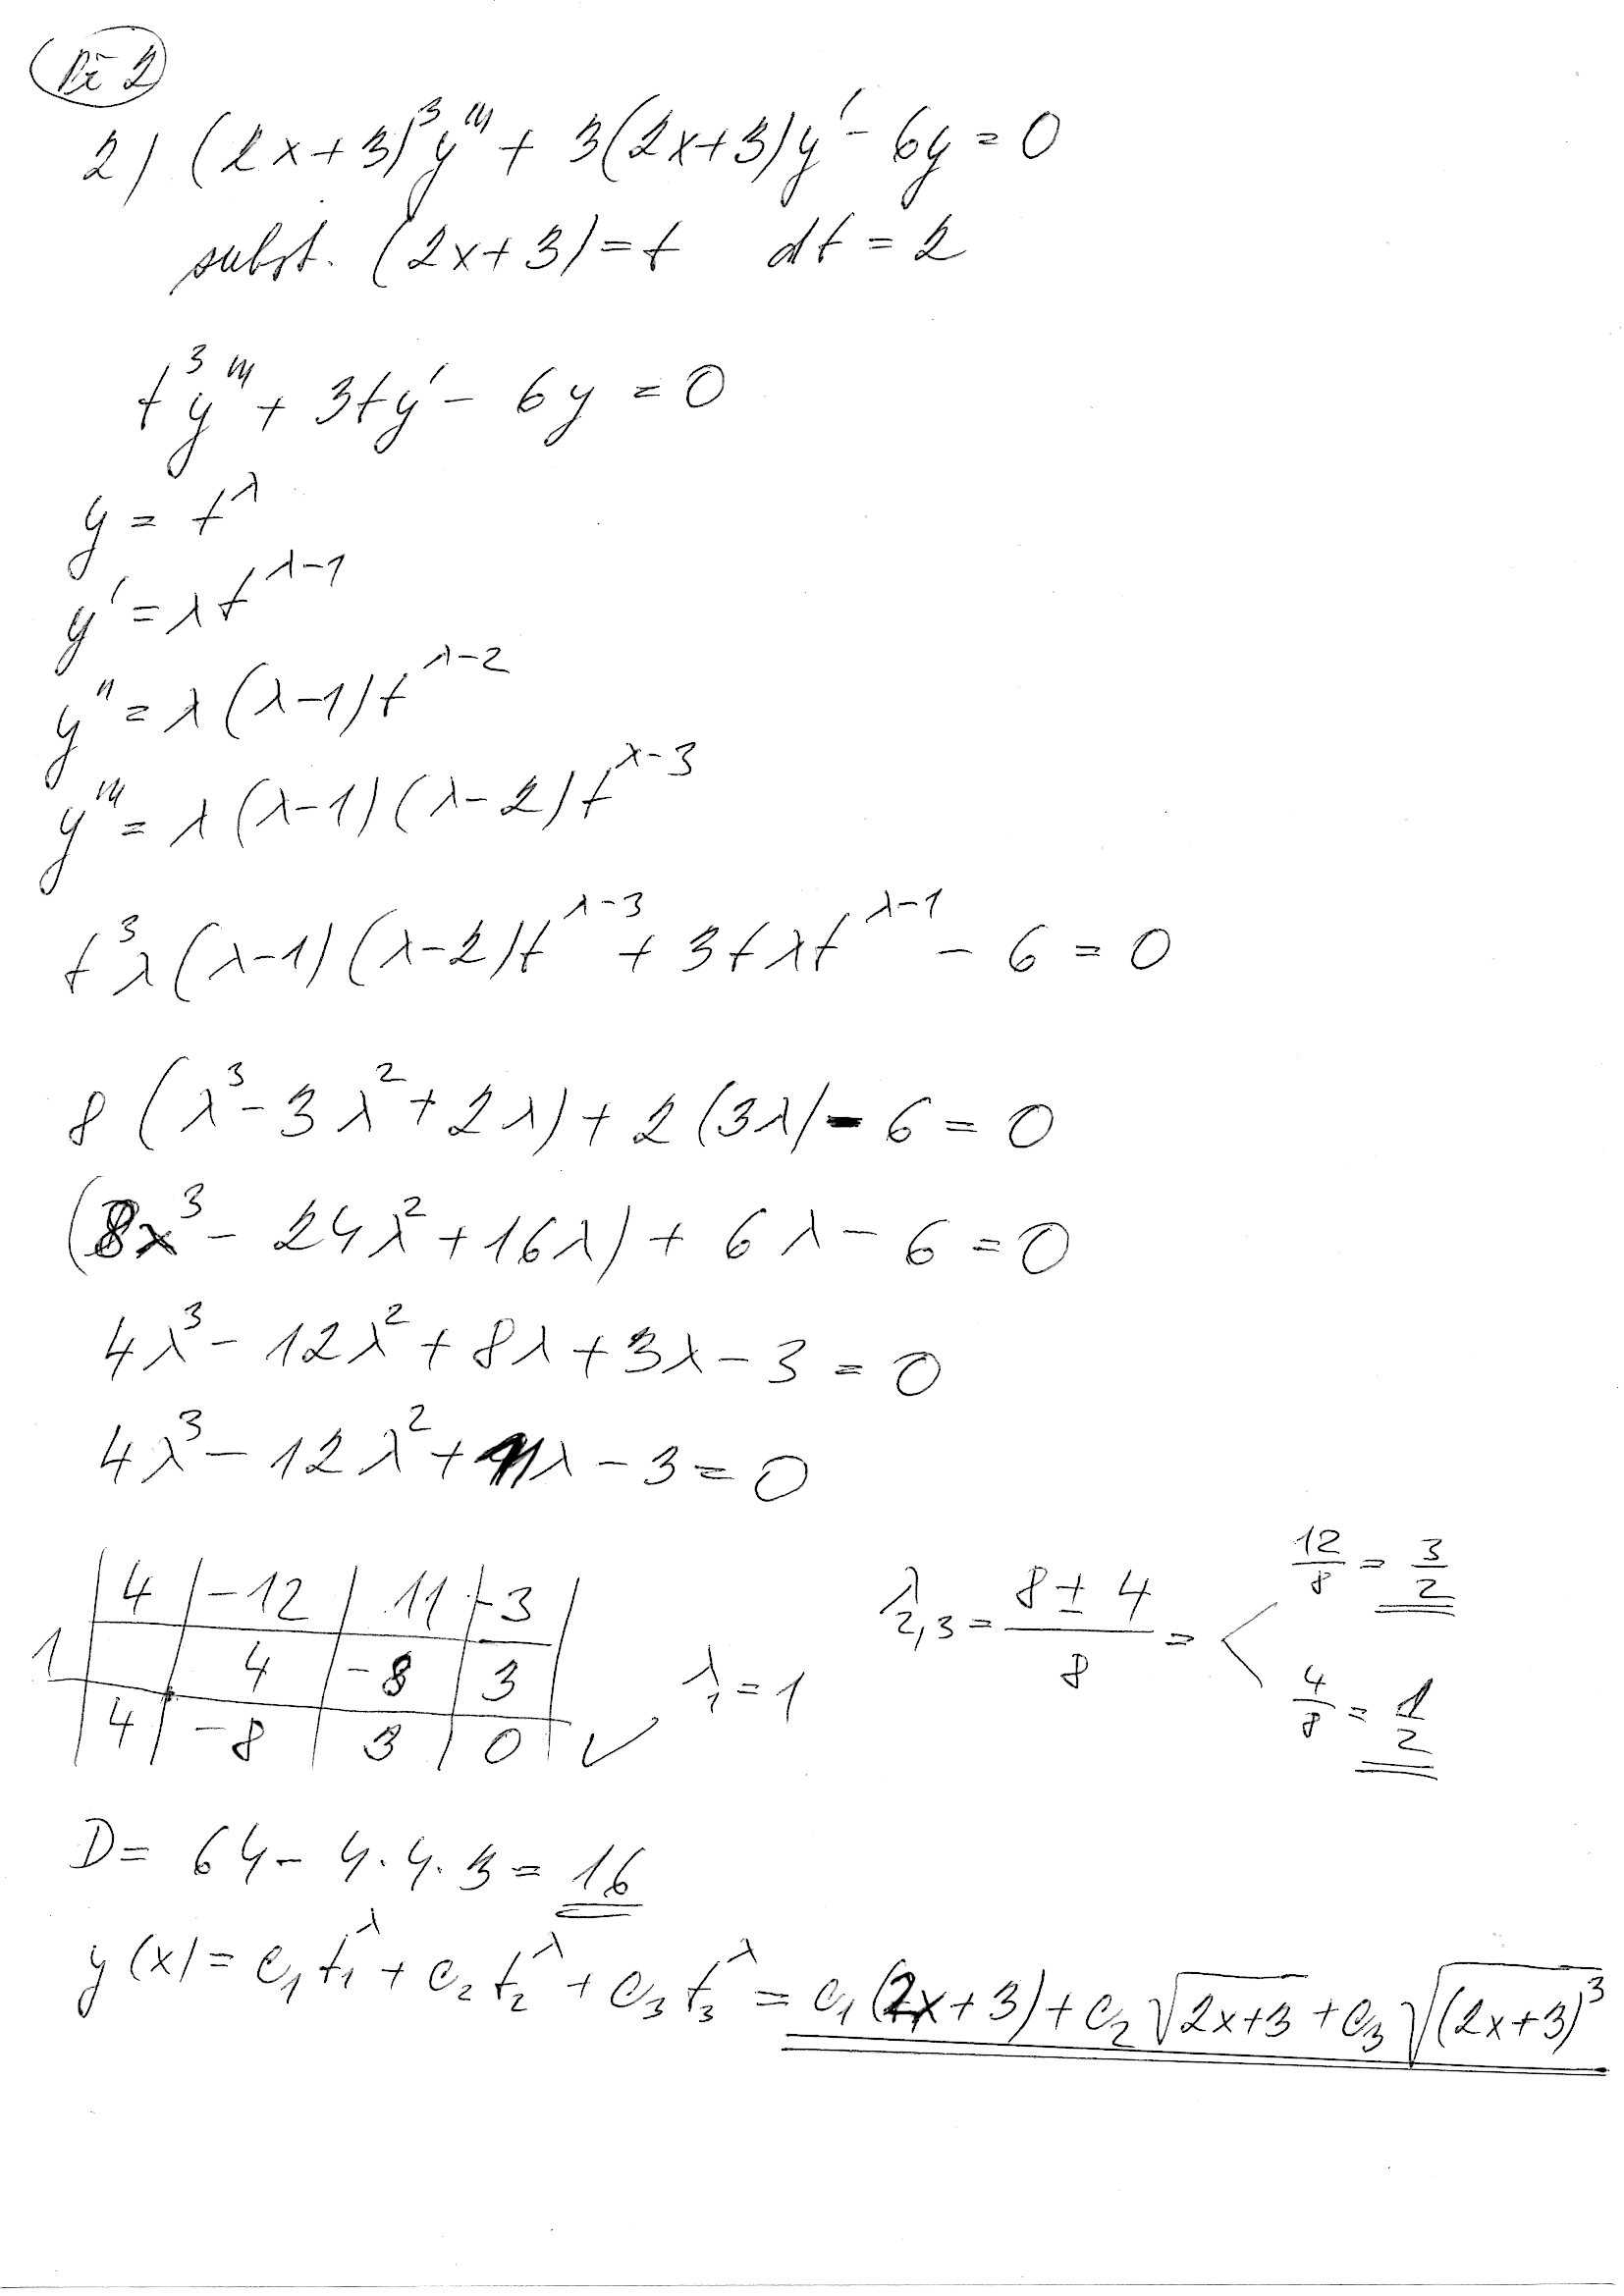 Př 2
2) (2x+3)³y''' + 3(2x+3)y' - 6y = 0
subst. (2x+3) = t dt = 2
t³y''' + 3ty' - 6y = 0
y = t^λ
y' = λt^(λ-1)
y'' = λ(λ-1)t^(λ-2)
y''' = λ(λ-1)(λ-2)t^(λ-3)
t³λ(λ-1)(λ-2)t^(λ-3) + 3tλt^(λ-1) - 6 = 0
8(λ³ - 3λ² + 2λ) + 2(3λ) - 6 = 0
(8λ³ - 24λ² + 16λ) + 6λ - 6 = 0
4λ³ - 12λ² + 8λ + 3λ - 3 = 0
4λ³ - 12λ² + 11λ - 3 = 0
4 | -12 | 11 | -3
1 | 4 | -8 | 3
4 | -8 | 3 | 0 ✓
λ₁ = 1
λ₂,₃ = (8 ± 4)/8 = < 12/8 = 3/2
4/8 = 1/2
D = 64 - 4·4·3 = 16
y(x) = c₁t₁^λ + c₂t₂^λ + c₃t₃^λ = c₁(2x+3) + c₂√(2x+3) + c₃√((2x+3)³)